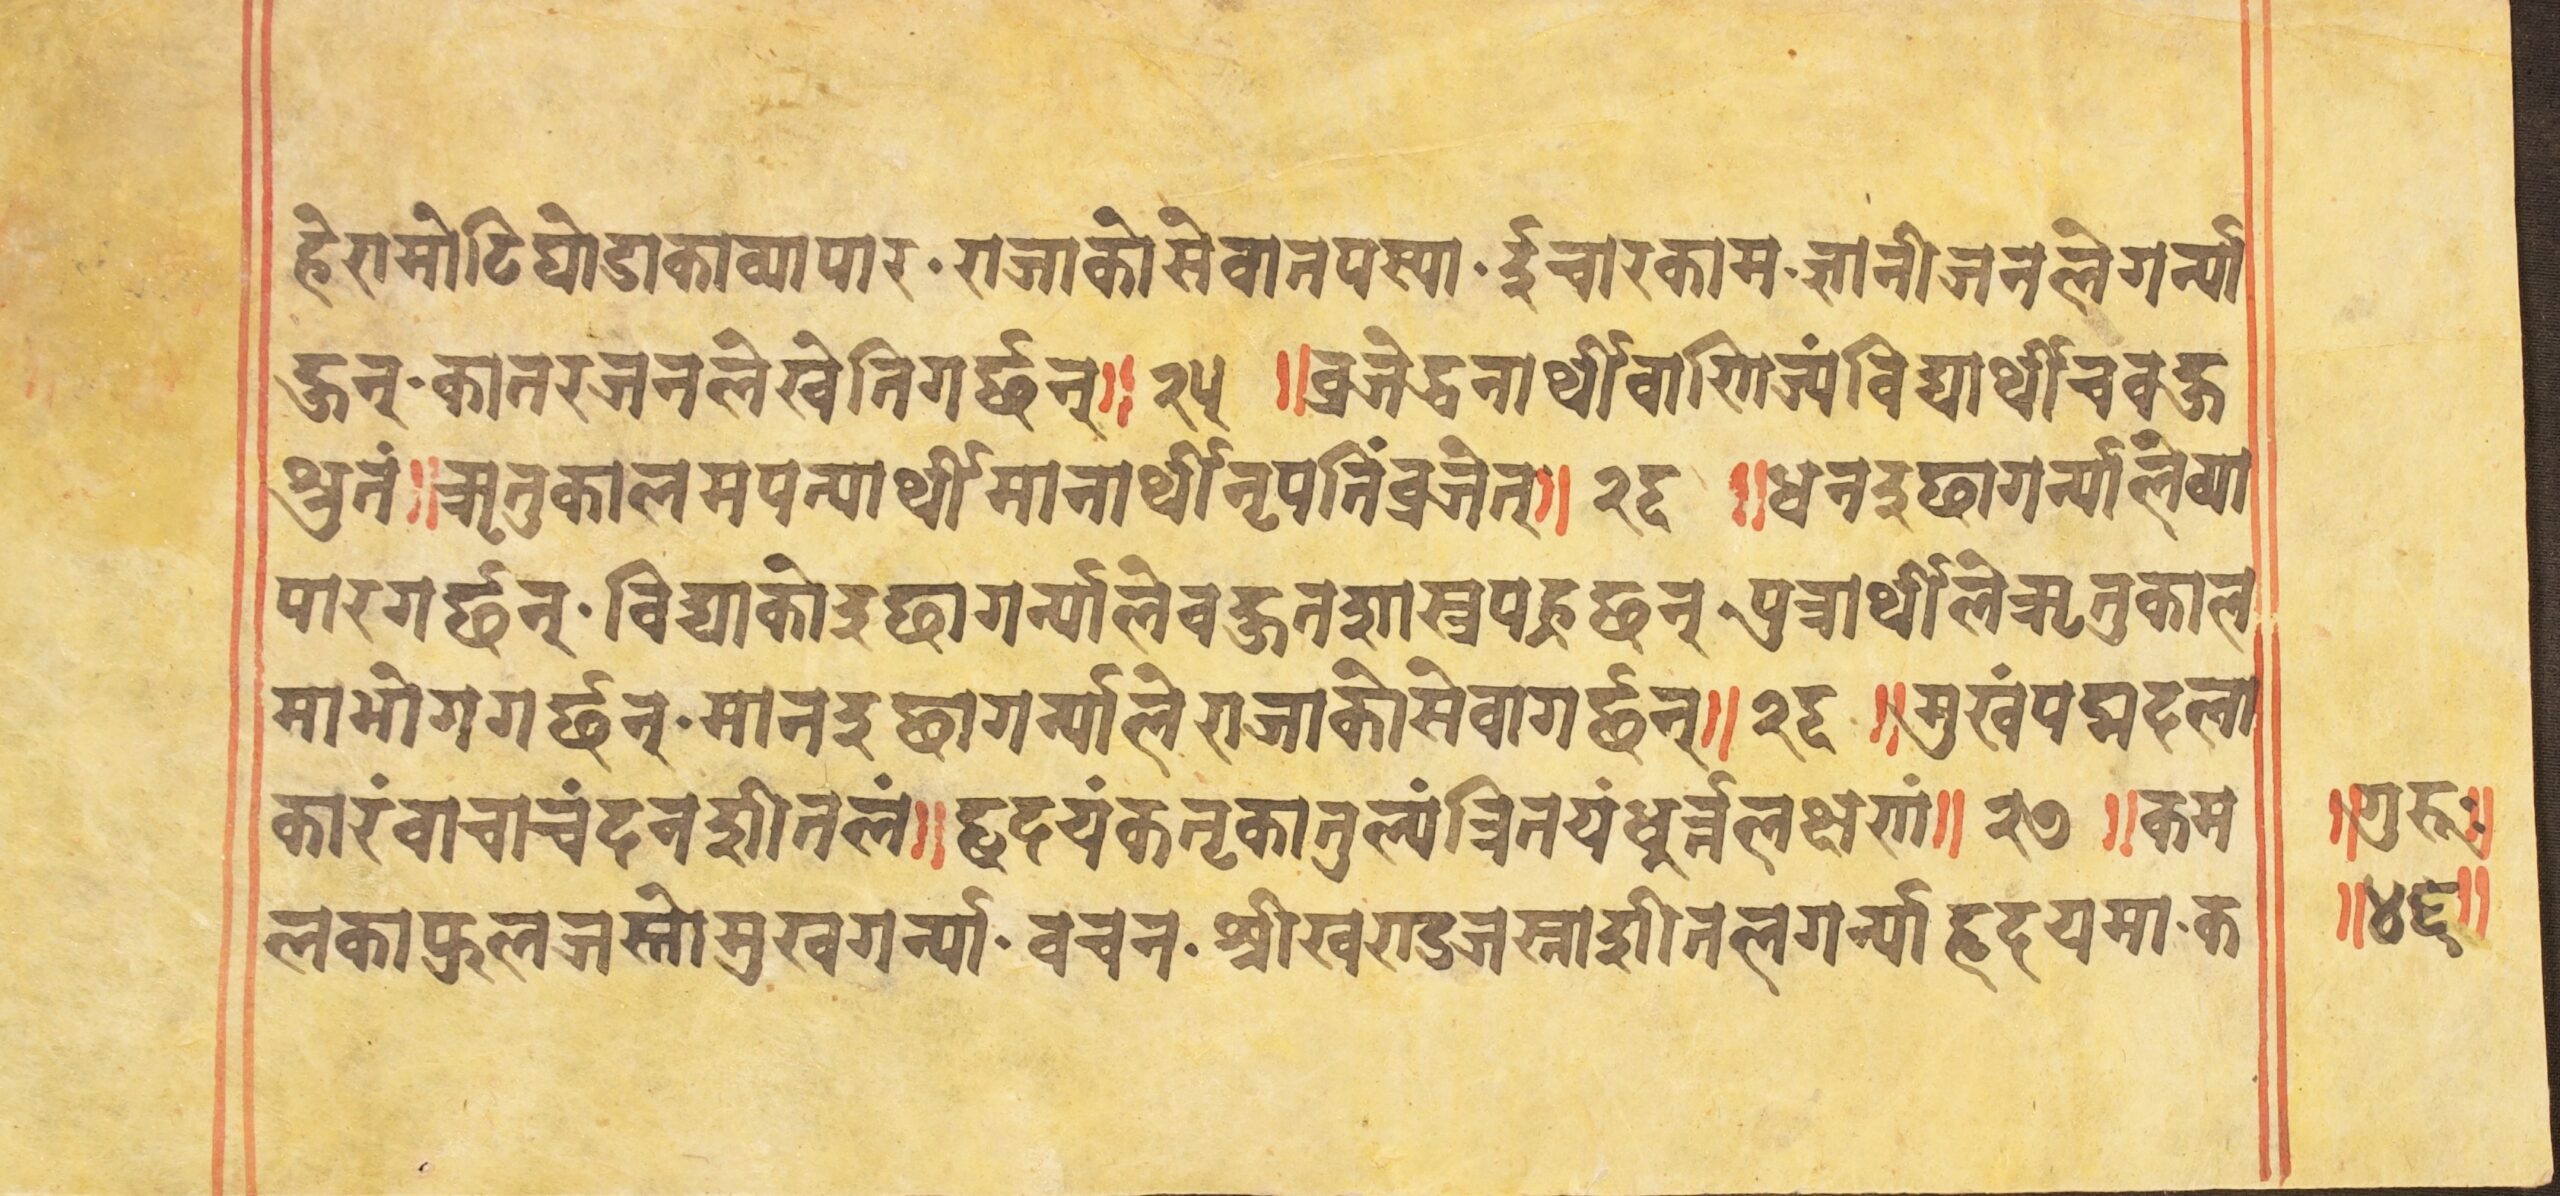 हेरामोटिघोडाकाव्यापार · राजाकोसेवातपस्या · ईचारकाम · ज्ञानीजनलेगर्न्या
हुन् · कातरजनलेखेतिगर्छन्॥ २५ ॥व्रजेद्धनार्थीवाणिज्यंविद्यार्थीचवहु
श्रुतं॥ऋतुकालमपत्यार्थीमानार्थीनृपतिंव्रजेत्॥ २६ ॥धनइछागर्न्यालेव्या
पारगर्छन् · विद्याकोइछागर्न्यालेवहुतशास्त्रपढ्छन् · पुत्रार्थीलेऋतुकाल
माभोगगर्छन् · मानइछागर्न्यालेराजाकोसेवागर्छन्॥ २६ ॥मुखंपद्मदला
कारंवाचाचंदनशीतलं॥हृदयंकतृकातुल्यंत्रितयंधूर्त्तलक्षणं॥ २७ ॥कम
लकाफुलजस्तोमुखगर्न्या · वचन · श्रीखण्डजस्ताशीतलगर्न्याहृदयमा · क
॥गुरुः॥
॥४६॥